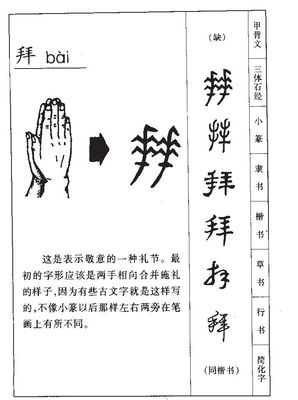 拜 bài
这是表示敬意的一种礼节。最
初的字形应该是两手相向合并施礼
的样子,因为有些古文字就是这样写
的,不像小篆以后那样左右两旁在笔
画上有所不同。
(缺)
拜
拜
拜
(同楷书)
甲骨文
三体石经
小篆
隶书
楷书
草书
行书
简化字